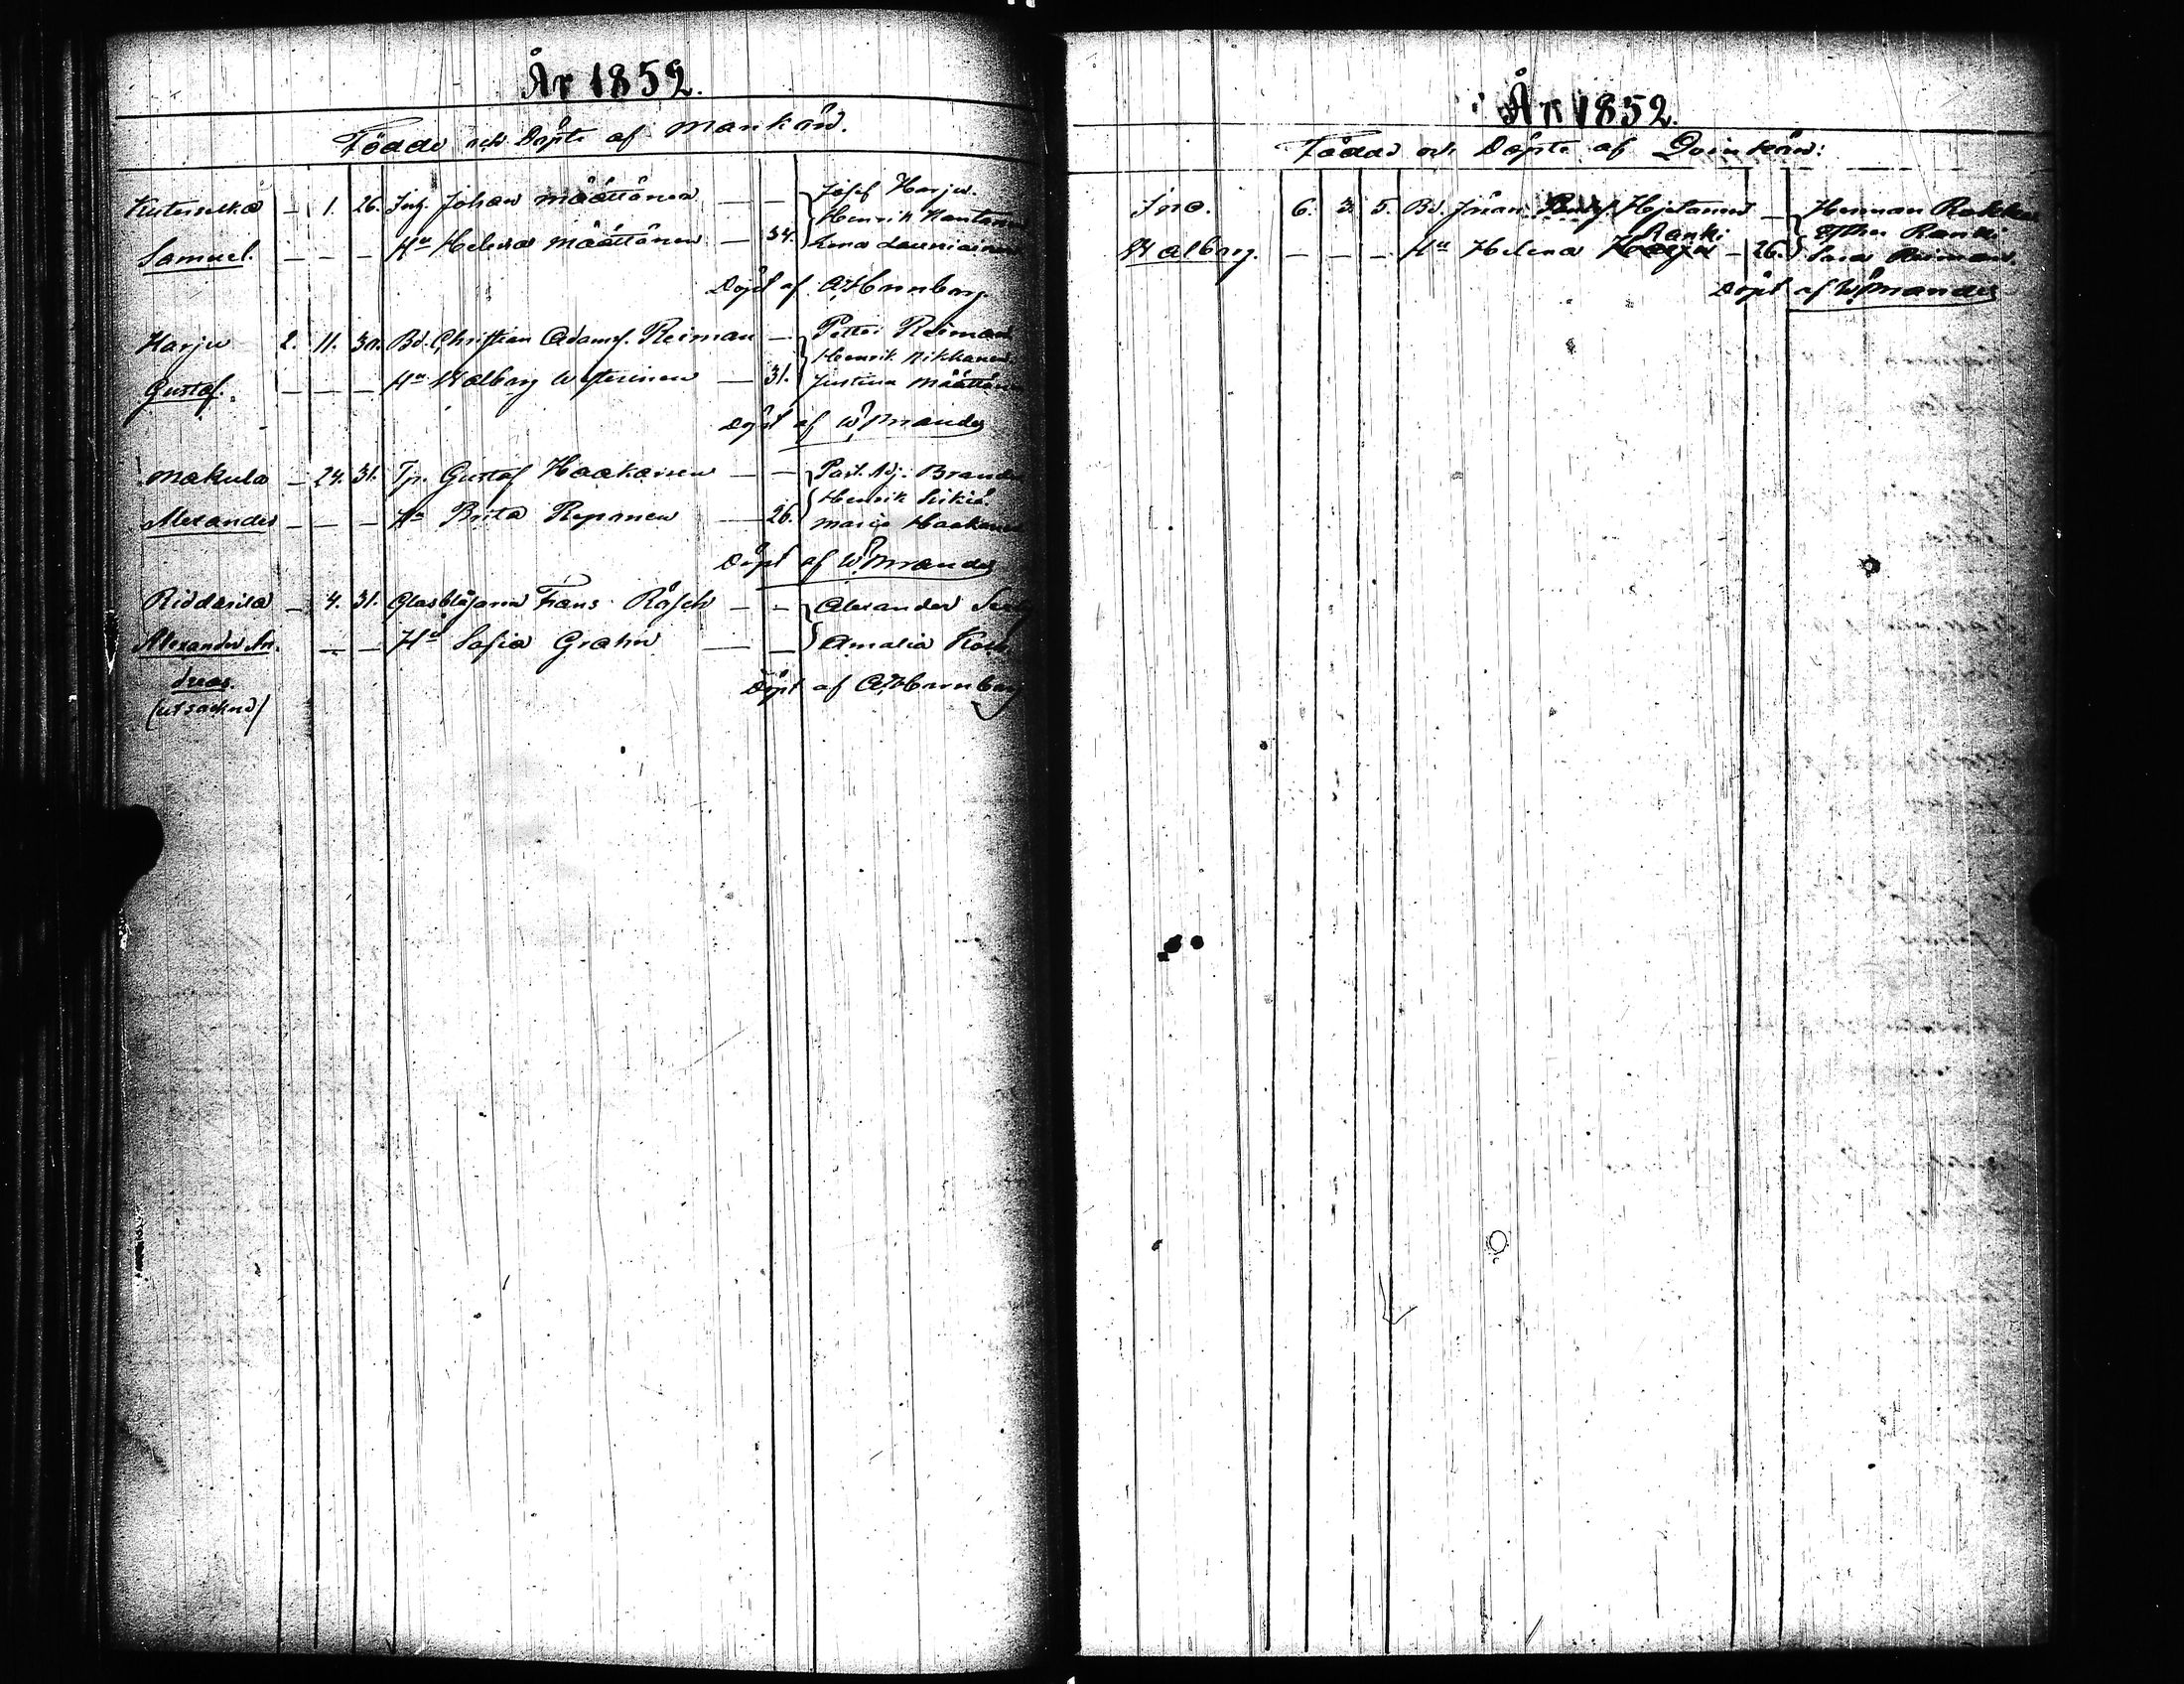 År 1852.
Födde och Döpte af Mankön.
Kuterselkä — 1. 26. Inh. Johan Määttänen — — Josef Harju.
Henrik
Samuel. — — — Hu Helena Määttänen — 34. Lena Launiainen
Döpt af A. Hornborg.
Harju 2. 11. 30. Bd. Christian Adamsf. Reiman — Petter Reiman
Henrik Rikkanen
Gustaf. — — — Hu Walborg Westerinen — 31. Justina Määttänen
Döpt af W. Brander
Makula — 24. 31. Tp. Gustaf Haakanen — — Past. Adj. Brander
Henrik
Alexander — — — Hu Brita Reponen — 26. Maria Haakanen
Döpt af W. Brander
Riddarila — 4. 31. Glasblåsaren Frans Räsch — — Alexander
Alexander An- — — Hu Sofia Grahn — — Amalia
dreas.
Döpt af A. Hornborg
(utsocknes)
År 1852.
Födde och Döpte af Qvinkön:
Ino. 6. 3. 5. Bd. Hjetanen — Herman Rokka
Ranki Esther Ranki
Walborg. — — — Hu Helena Harju — 26. Sara Reiman.
Döpt af W. Brander